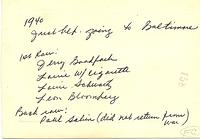 1940
just bef. going to Baltimore
1st Row:
Jerry Goodpack
Laurie w/cigarette
Lerii Schwartz
Leon Bloomberg
Back row:
Paul Salin (did not return from
war